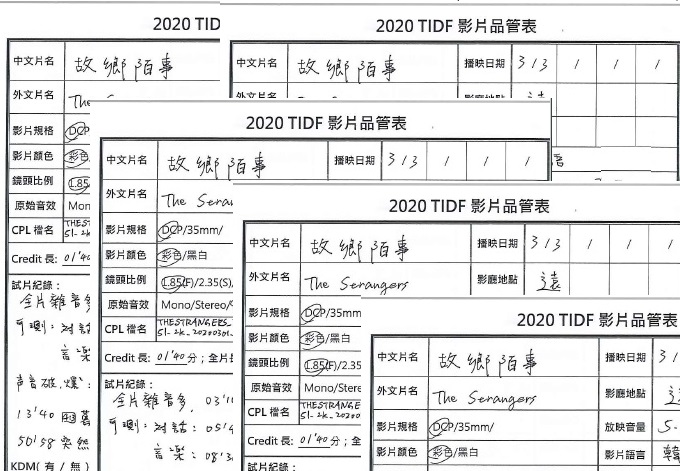 2020 TID
中文片名 故鄉陌事
外文片名 The S
影片規格 DCP
影片顏色 彩色
鏡頭比例 1.85
原始音效 Mon
CPL 檔名 THEST
SL-2k
Credit 長: 01'40
試片紀錄:
全片雜音多
可測: 對話
音樂
声音破、爆:
13'40
50'58 突然
KDM(有/無)
2020 TIDF 影片品管表
中文片名 故鄉陌事 播映日期 3/3 / / /
外文片名 影廳地點
2020 TIDF 影片品管表
中文片名 故鄉陌事 播映日期 3/3 / / /
外文片名 The Seran
影片規格 DCP/35mm/
影片顏色 彩色/黑白
鏡頭比例 1.85(F)/2.35(S),
原始音效 Mono/Stereo/
CPL 檔名 THESTRANGERS_
SL-2k-20200301-
Credit 長: 01'40分;全片
試片紀錄:
全片雜音多, 03'1
可測: 對話: 05'4
音樂: 08'3
2020 TIDF 影片品管表
中文片名 故鄉陌事 播映日期 3/3 / / /
外文片名 The Serangers 影廳地點
影片規格 DCP/35mm
影片顏色 彩色/黑白
鏡頭比例 1.85(F)/2.35
原始音效 Mono/Stere
CPL 檔名 THESTRANGE
SL-2k-20200
Credit 長: 01'40分;全
試片紀錄:
2020 TIDF 影片品管表
中文片名 故鄉陌事 播映日期 3/
外文片名 The Serangers 影廳地點
影片規格 DCP/35mm/ 放映音量 5-
影片顏色 彩色/黑白 影片語言 韓